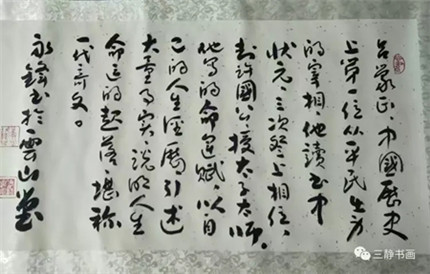 吕蒙正，中國歷史
上第一位从平民出身
的宰相，他讀书中
状元，三次登上相位，
封許國公授太子太師。
他写的命運赋，以自
己的人生經歷，引述
大量事实，说明人生
命运的起落，堪称
一代奇文。
书於雲山堂
三静书画